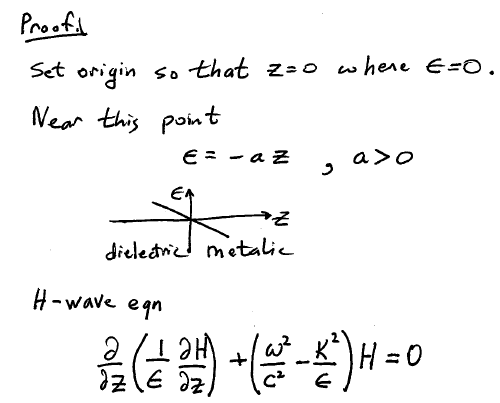 Proof:
Set origin so that z=0 where ϵ=0.
Near this point
ϵ = -a z , a>0
ϵ
z
dielectric metalic
H-wave eqn
∂/∂z (1/ϵ ∂H/∂z) + (ω²/c² - K²/ϵ) H = 0